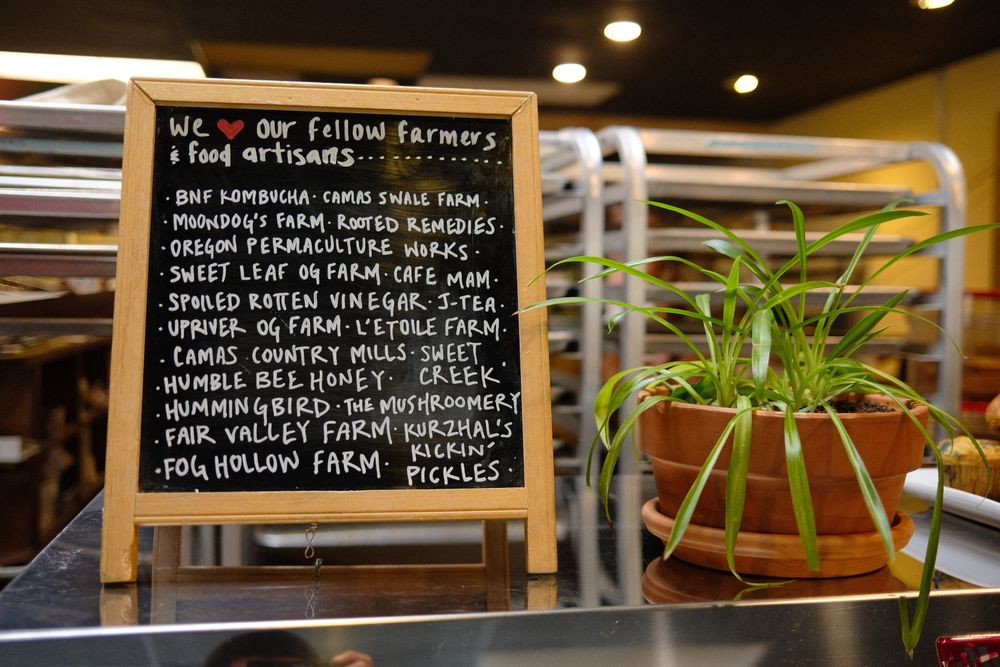 We ❤ our fellow farmers
& food artisans..............
· BNF KOMBUCHA · CAMAS SWALE FARM ·
· MOONDOG'S FARM · ROOTED REMEDIES ·
· OREGON PERMACULTURE WORKS ·
· SWEET LEAF OG FARM · CAFE MAM ·
· SPOILED ROTTEN VINEGAR · J-TEA ·
· UPRIVER OG FARM · L'ETOILE FARM ·
· CAMAS COUNTRY MILLS · SWEET CREEK ·
· HUMBLE BEE HONEY ·
· HUMMINGBIRD · THE MUSHROOMERY
· FAIR VALLEY FARM · KURZHAL'S KICKIN' PICKLES ·
· FOG HOLLOW FARM ·